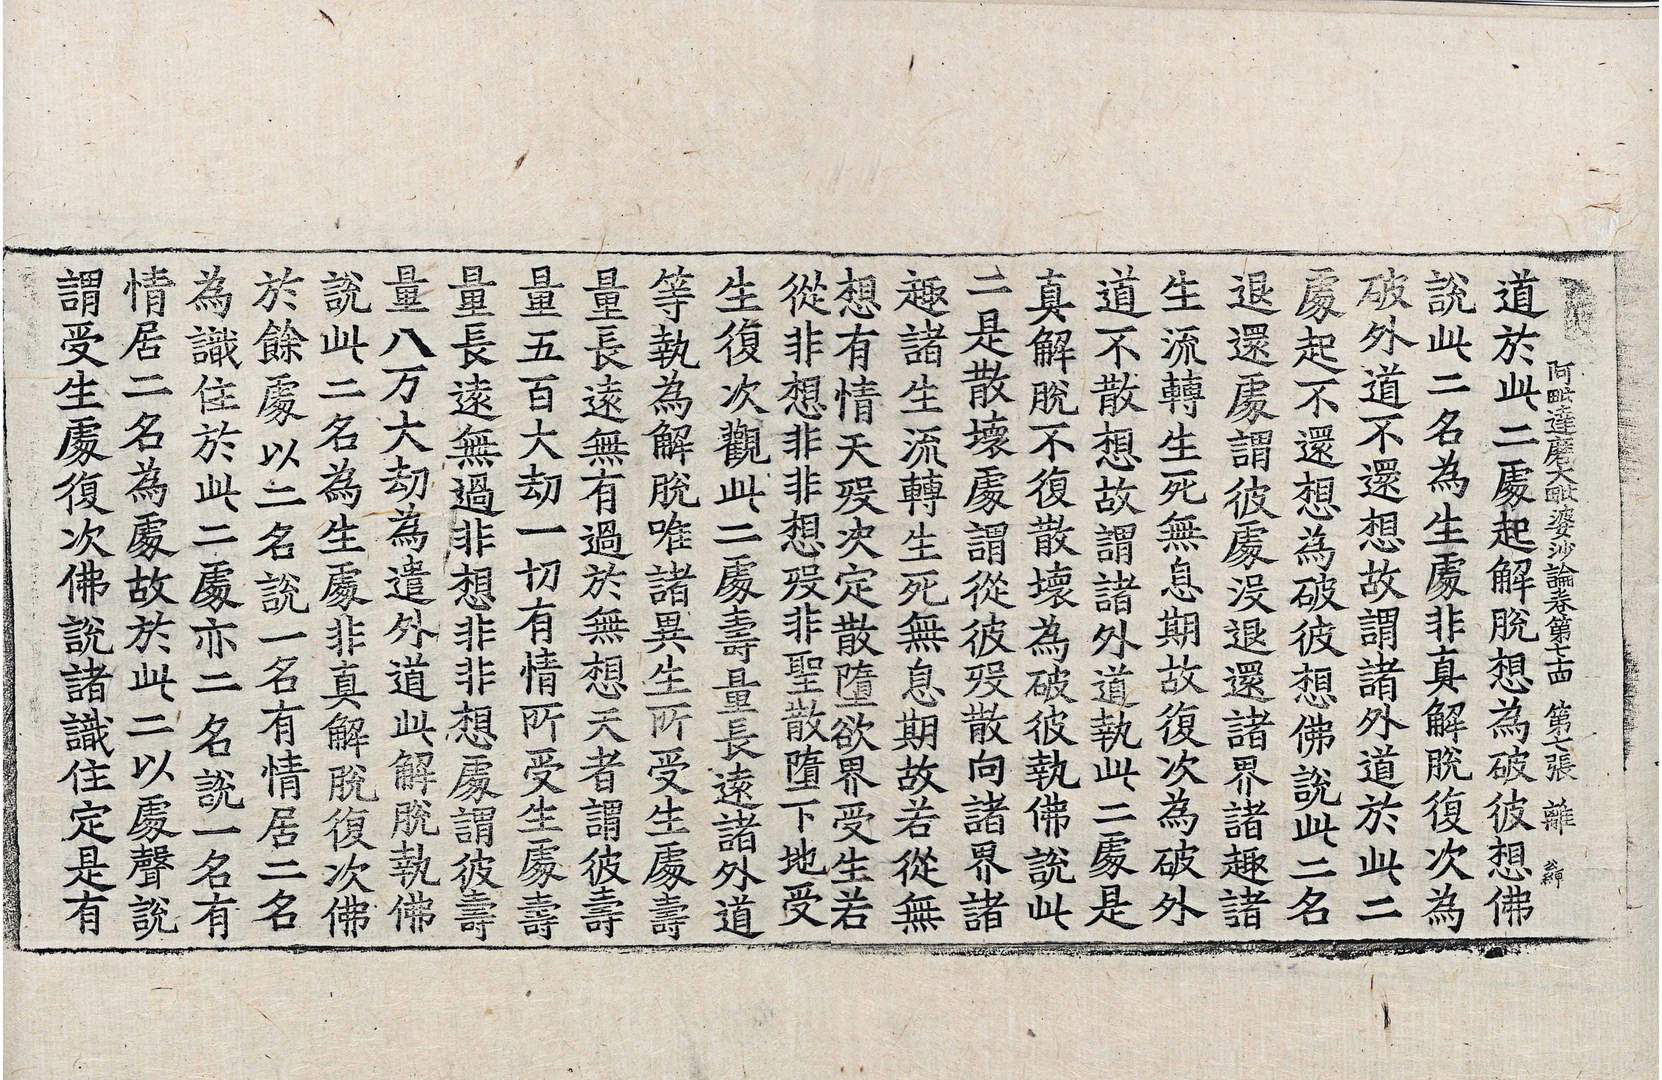 阿毗達磨大毗婆沙論卷第七十四 第七張 離
道於此二處起解脫想為破彼想佛
說此二名為生處非真解脫復次為
破外道不還想故謂諸外道於此二
處起不還想為破彼想佛說此二名
退還處謂彼處沒退還諸界諸趣諸
生流轉生死無息期故復次為破外
道不散想故謂諸外道執此二處是
真解脫不復散壞為破彼執佛說此
二是散壞處謂從彼歿散向諸界諸
趣諸生流轉生死無息期故若從無
想有情天歿決定散墮欲界受生若
從非想非非想歿非聖散墮下地受
生復次觀此二處壽量長遠諸外道
等執為解脫唯諸異生所受生處壽
量長遠無有過於無想天者謂彼壽
量五百大劫一切有情所受生處壽
量長遠無過非想非非想處謂彼壽
量八万大劫為遣外道此解脫執佛
說此二名為生處非真解脫復次佛
於餘處以二名說一名有情居二名
為識住於此二處亦二名說一名有
情居二名為處故於此二以處聲說
謂受生處復次佛說諸識住定是有